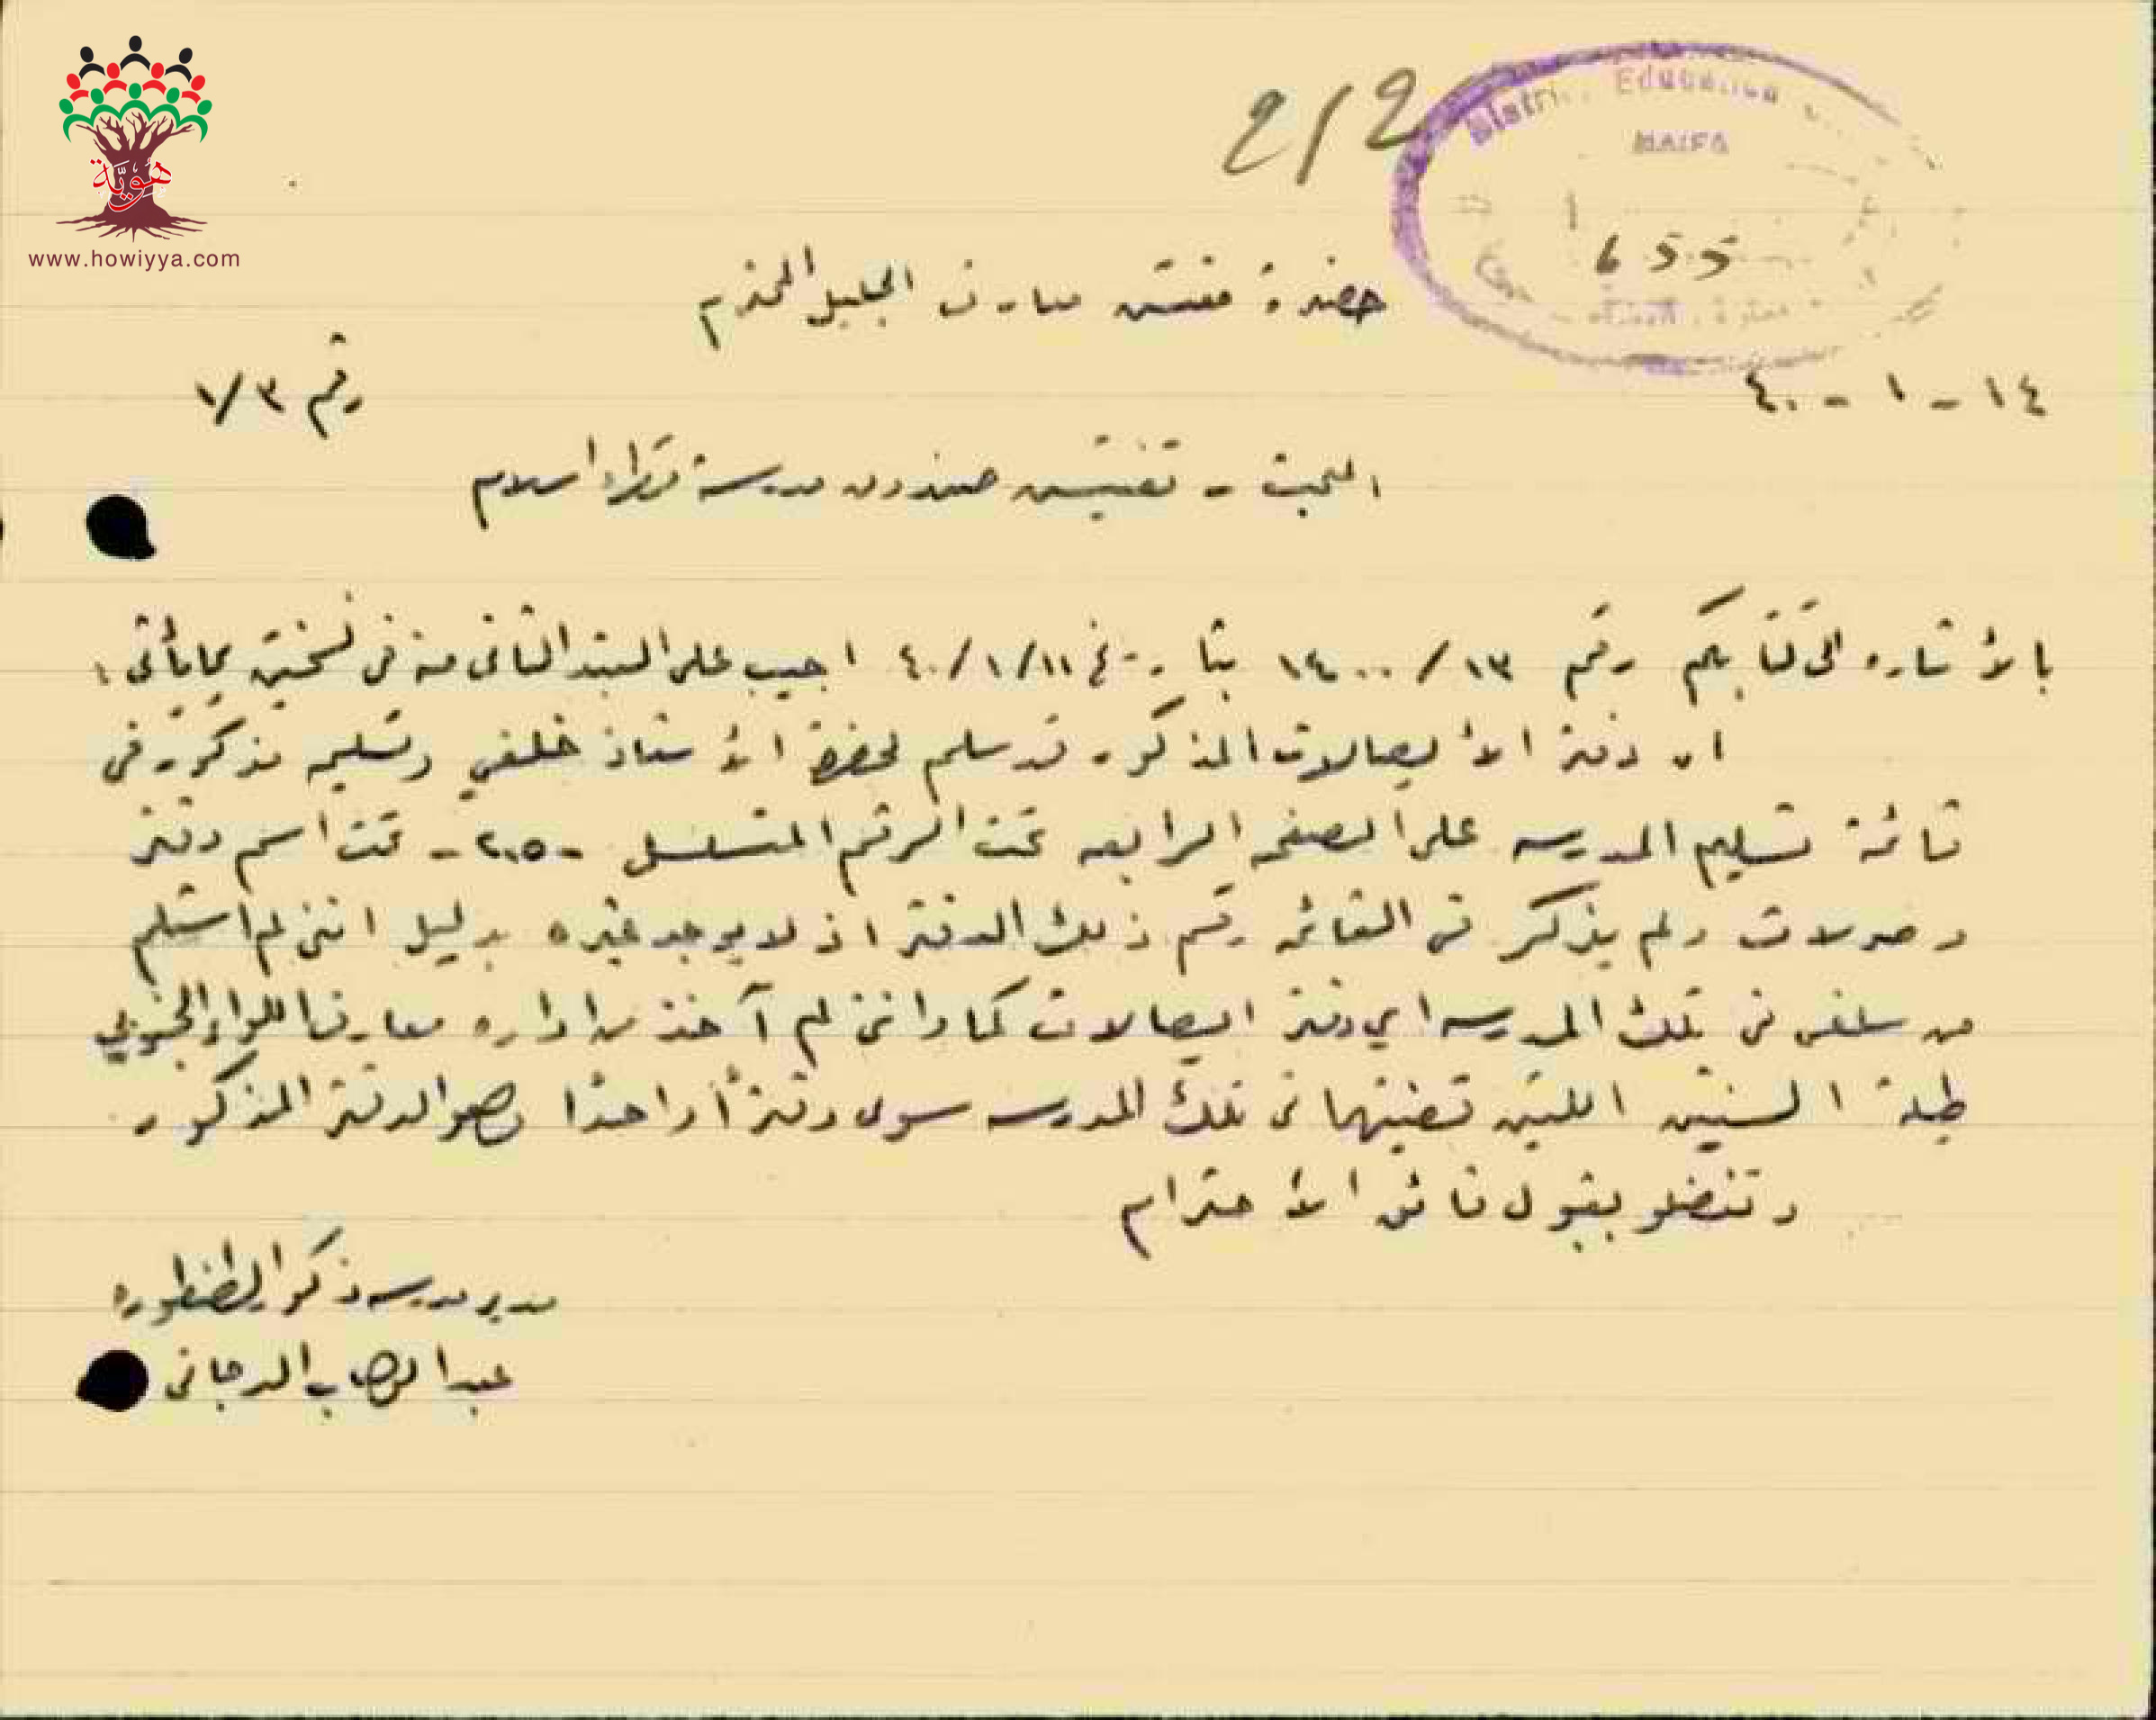 هوية
www.howiyya.com
212
District Education
HAIFA
655
حضرة مفتش معارف الجليل المحترم
١٤ - ١ - ٤٠
رقم ١/٣
المبحث - تفتيش صندوق مدرسة اسلام
بالأشاره الى كتابكم رقم ١٣/ ١٤٠٠ بتاريخ ٤٠/١/١١ اجيب على البند الثاني منه في نسختين بما يأتي :
ان دفتر الأيصالات المذكور قد سلم لحضرة الأستاذ خلفي وتسليمه مذكور في
قائمة تسليم المدرسه على الصفحه الرابعه تحت الرقم المتسلسل - ٢٠٥ - تحت اسم دفتر
وصولات ولم يذكر في القائمه رقم ذلك الدفتر اذ لا يوجد غيره بدليل انني لم استلم
من سلفي في تلك المدرسه اي دفتر ايصالات كما وانني لم آخذ من اداره معارف اللواء الجنوبي
طيلة السنتين اللتين قضيتهما في تلك المدرسه سوى دفترأ واحدًا وهو الدفتر المذكور.
وتفضلو بقبول فائق الأحترام
مدير مدرسه ذكور الطنطوره
عبد الوهاب الدجاني